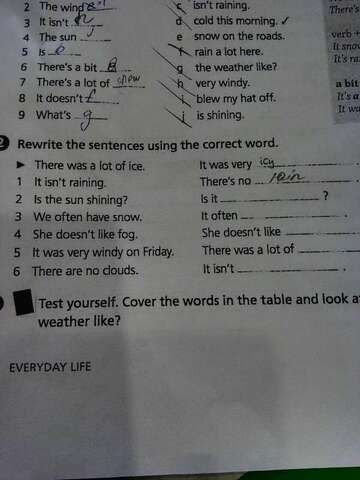 2 The wind c isn't raining.
3 It isn't d cold this morning. ✓
4 The sun j e snow on the roads.
5 Is b f rain a lot here.
6 There's a bit g the weather like?
7 There's a lot of h very windy.
8 It doesn't f i blew my hat off.
9 What's g j is shining.
Rewrite the sentences using the correct word.
► There was a lot of ice. It was very icy
1 It isn't raining. There's no rain.
2 Is the sun shining? Is it ?
3 We often have snow. It often .
4 She doesn't like fog. She doesn't like .
5 It was very windy on Friday. There was a lot of .
6 There are no clouds. It isn't .
Test yourself. Cover the words in the table and look a
weather like?
EVERYDAY LIFE
There's
verb +
It snow
It's ra
a bit
It's a
It wa